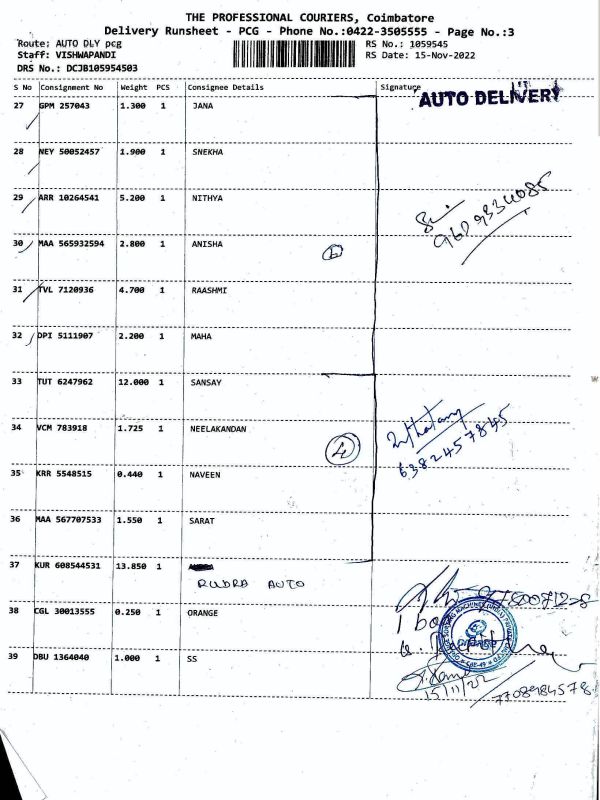 THE PROFESSIONAL COURIERS, Coimbatore
Delivery Runsheet - PCG - Phone No.:0422-3505555 - Page No.:3
Route: AUTO DLY pcg RS No.: 1059545
Staff: VISHWAPANDI RS Date: 15-Nov-2022
DRS No.: DCJB105954503
S No Consignment No Weight PCS Consignee Details Signature
AUTO DELIVERY
27 GPM 257043 1.300 1 JANA
28 NEY 50052457 1.900 1 SNEKHA
29 ARR 10264541 5.200 1 NITHYA
9609334085
30 MAA 565932594 2.800 1 ANISHA
6
31 TVL 7120936 4.700 1 RAASHMI
32 DPI 5111907 2.200 1 MAHA
33 TUT 6247962 12.000 1 SANSAY
34 VCM 783918 1.725 1 NEELAKANDAN
4
6382457845
35 KRR 5548515 0.440 1 NAVEEN
36 MAA 567707533 1.550 1 SARAT
37 KUR 608544531 13.850 1
RUDRA AUTO
38 CGL 30013555 0.250 1 ORANGE
39 DBU 1364040 1.000 1 SS
15/11/22
7708984578